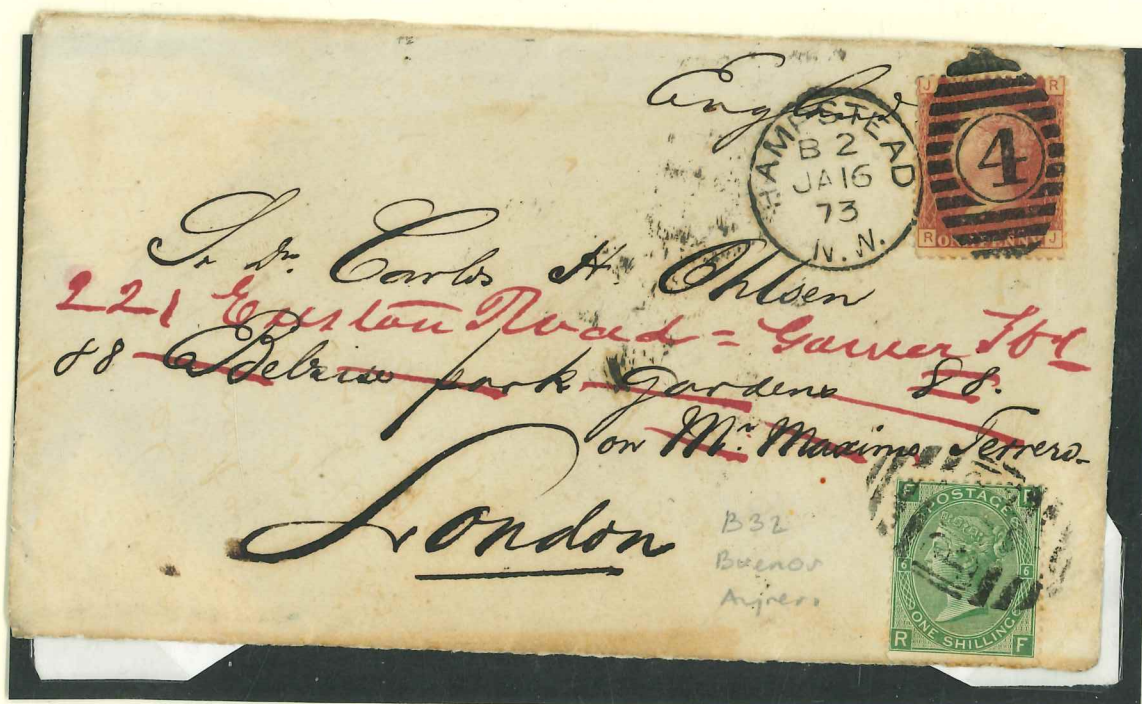 England
J R
HAMPSTEAD
B 2
JA 16
73
N.W.
4
R J
ONE PENNY
Sr. Dn. Carlos H. Ohlsen
221 Euston Road = Gower
88 Belsise park gardens 88.
on Mr. Maximo Terrero
London
B32
Buenos
Ayres
F R
POSTAGE
6 6
ONE SHILLING
R F